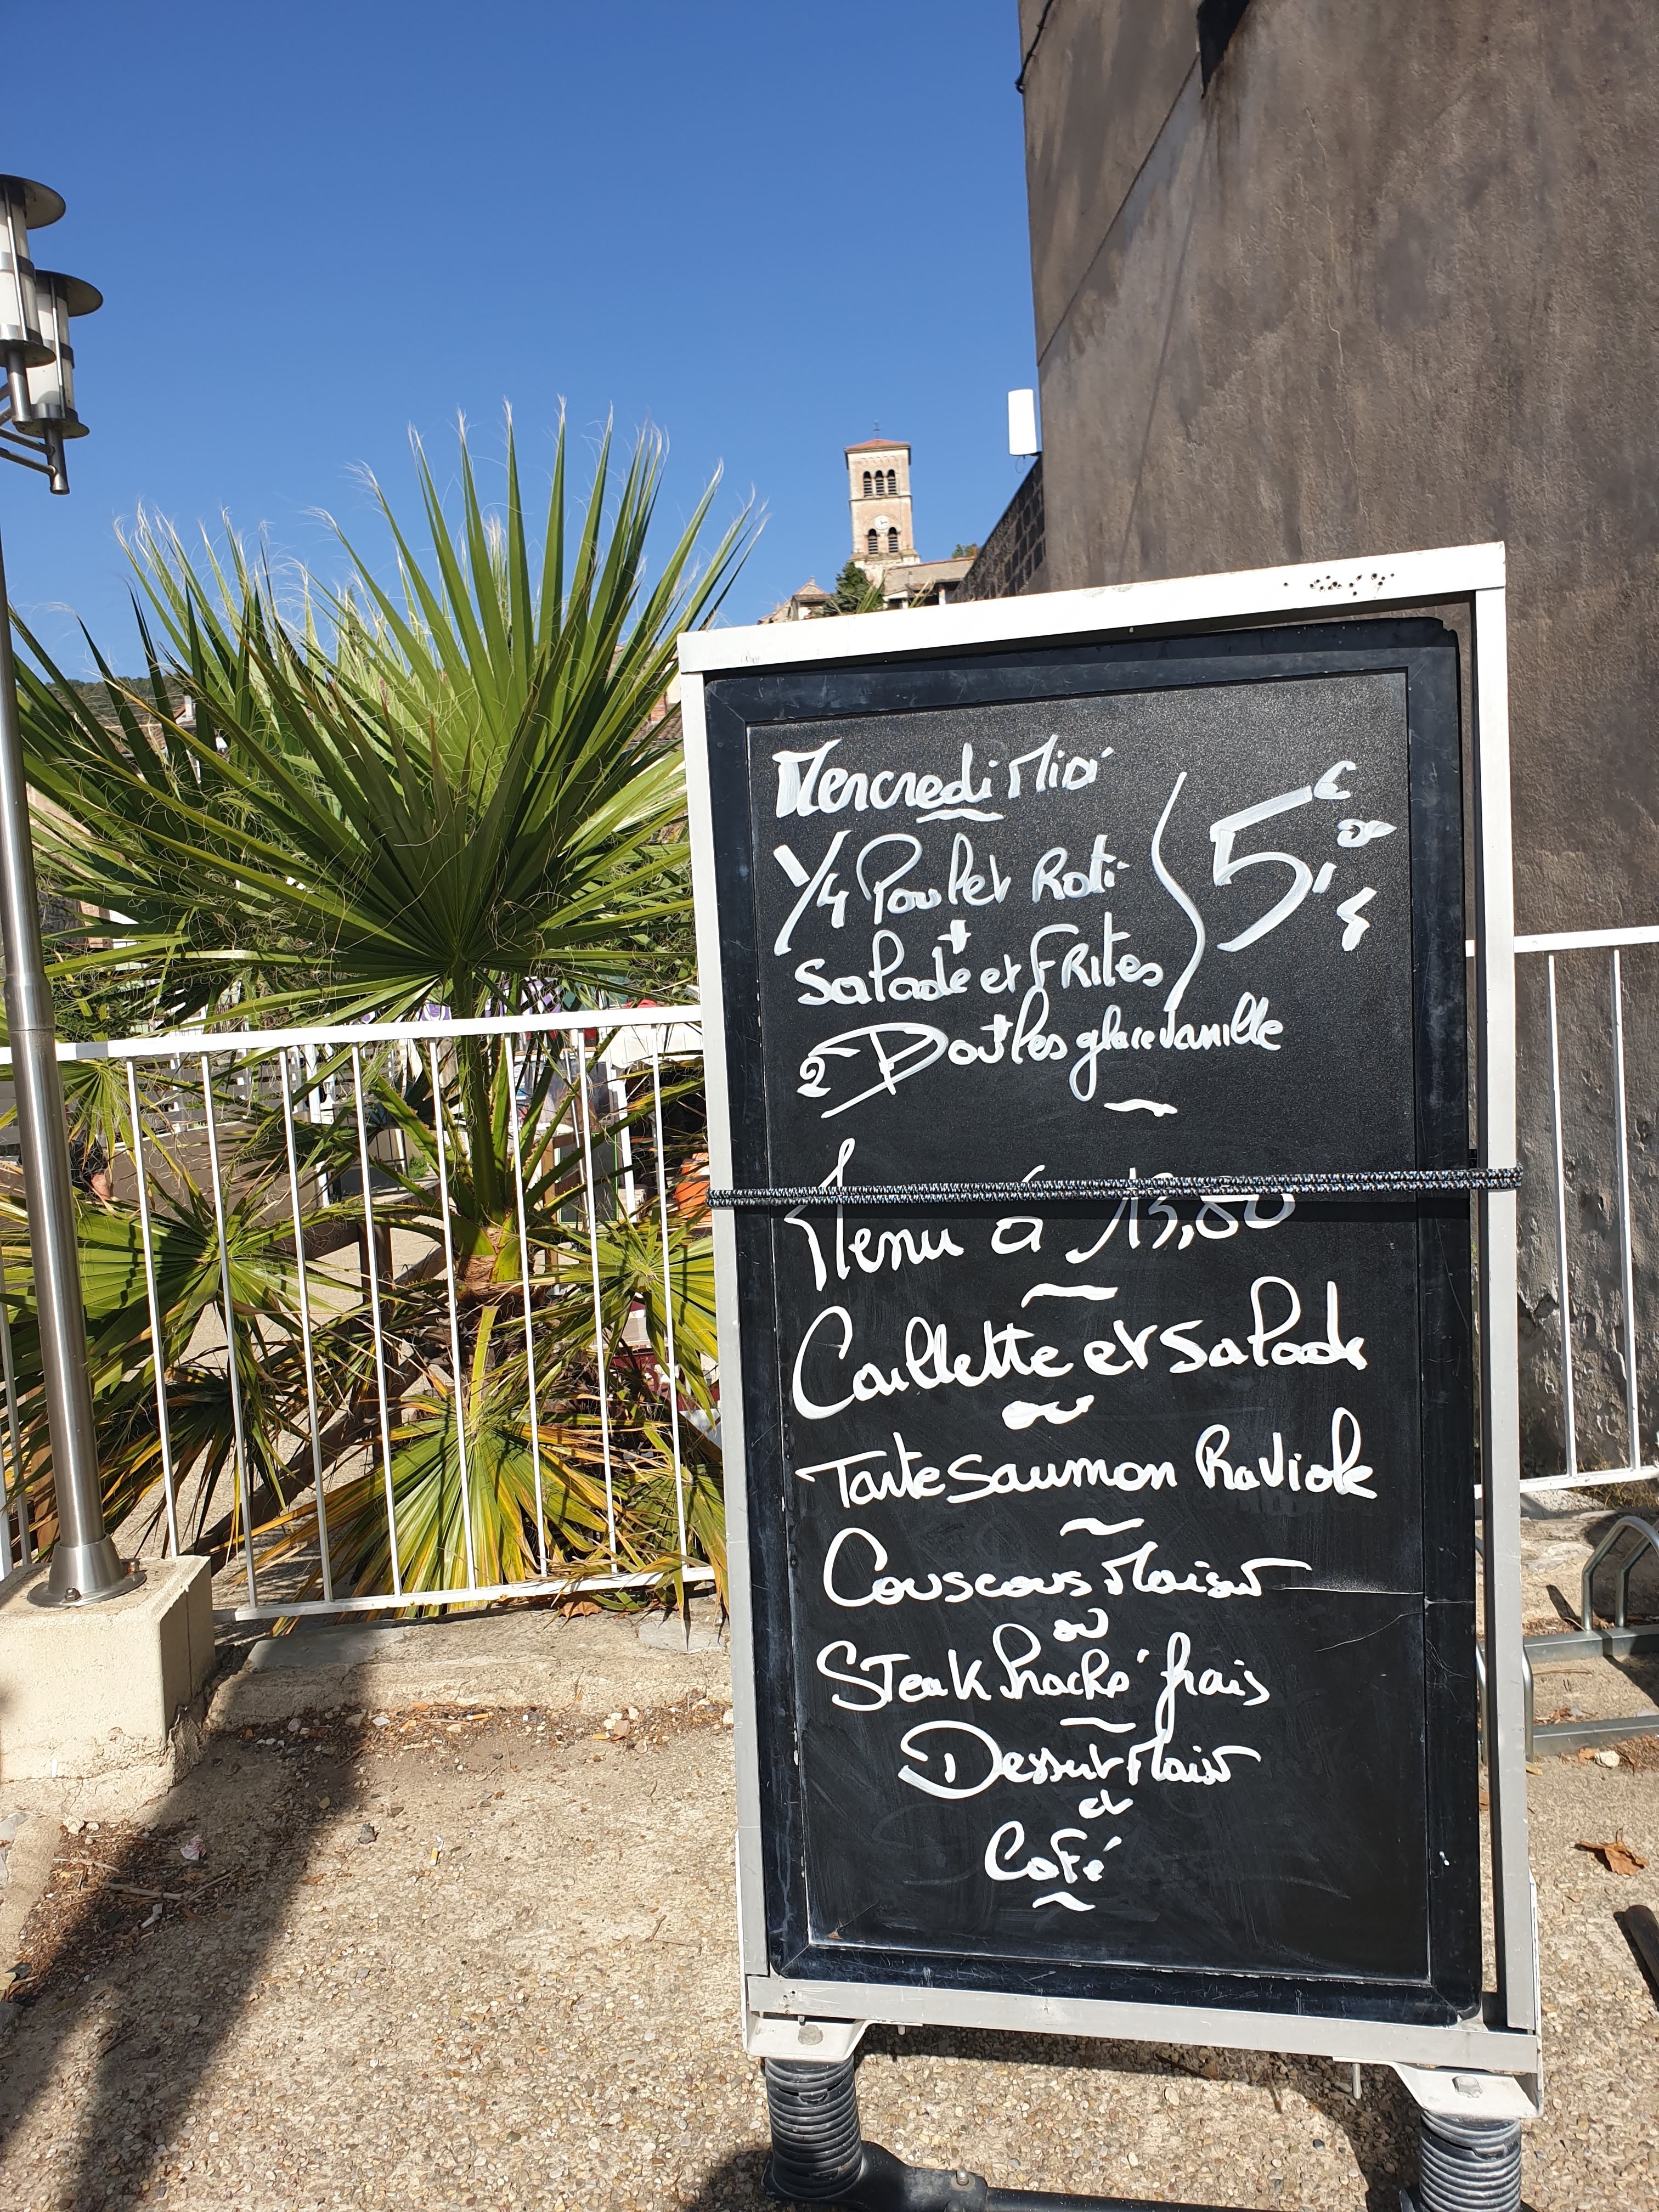 Mercredi Midi
1/4 Poulet Roti
+
Salade et FRites
5€
2 Boules glace vanille
Menu à 15,80
Caillette et Salade
ou
Tarte Saumon Raviole
Couscous Maison
ou
Steak haché frais
Dessert Maison
et
Café